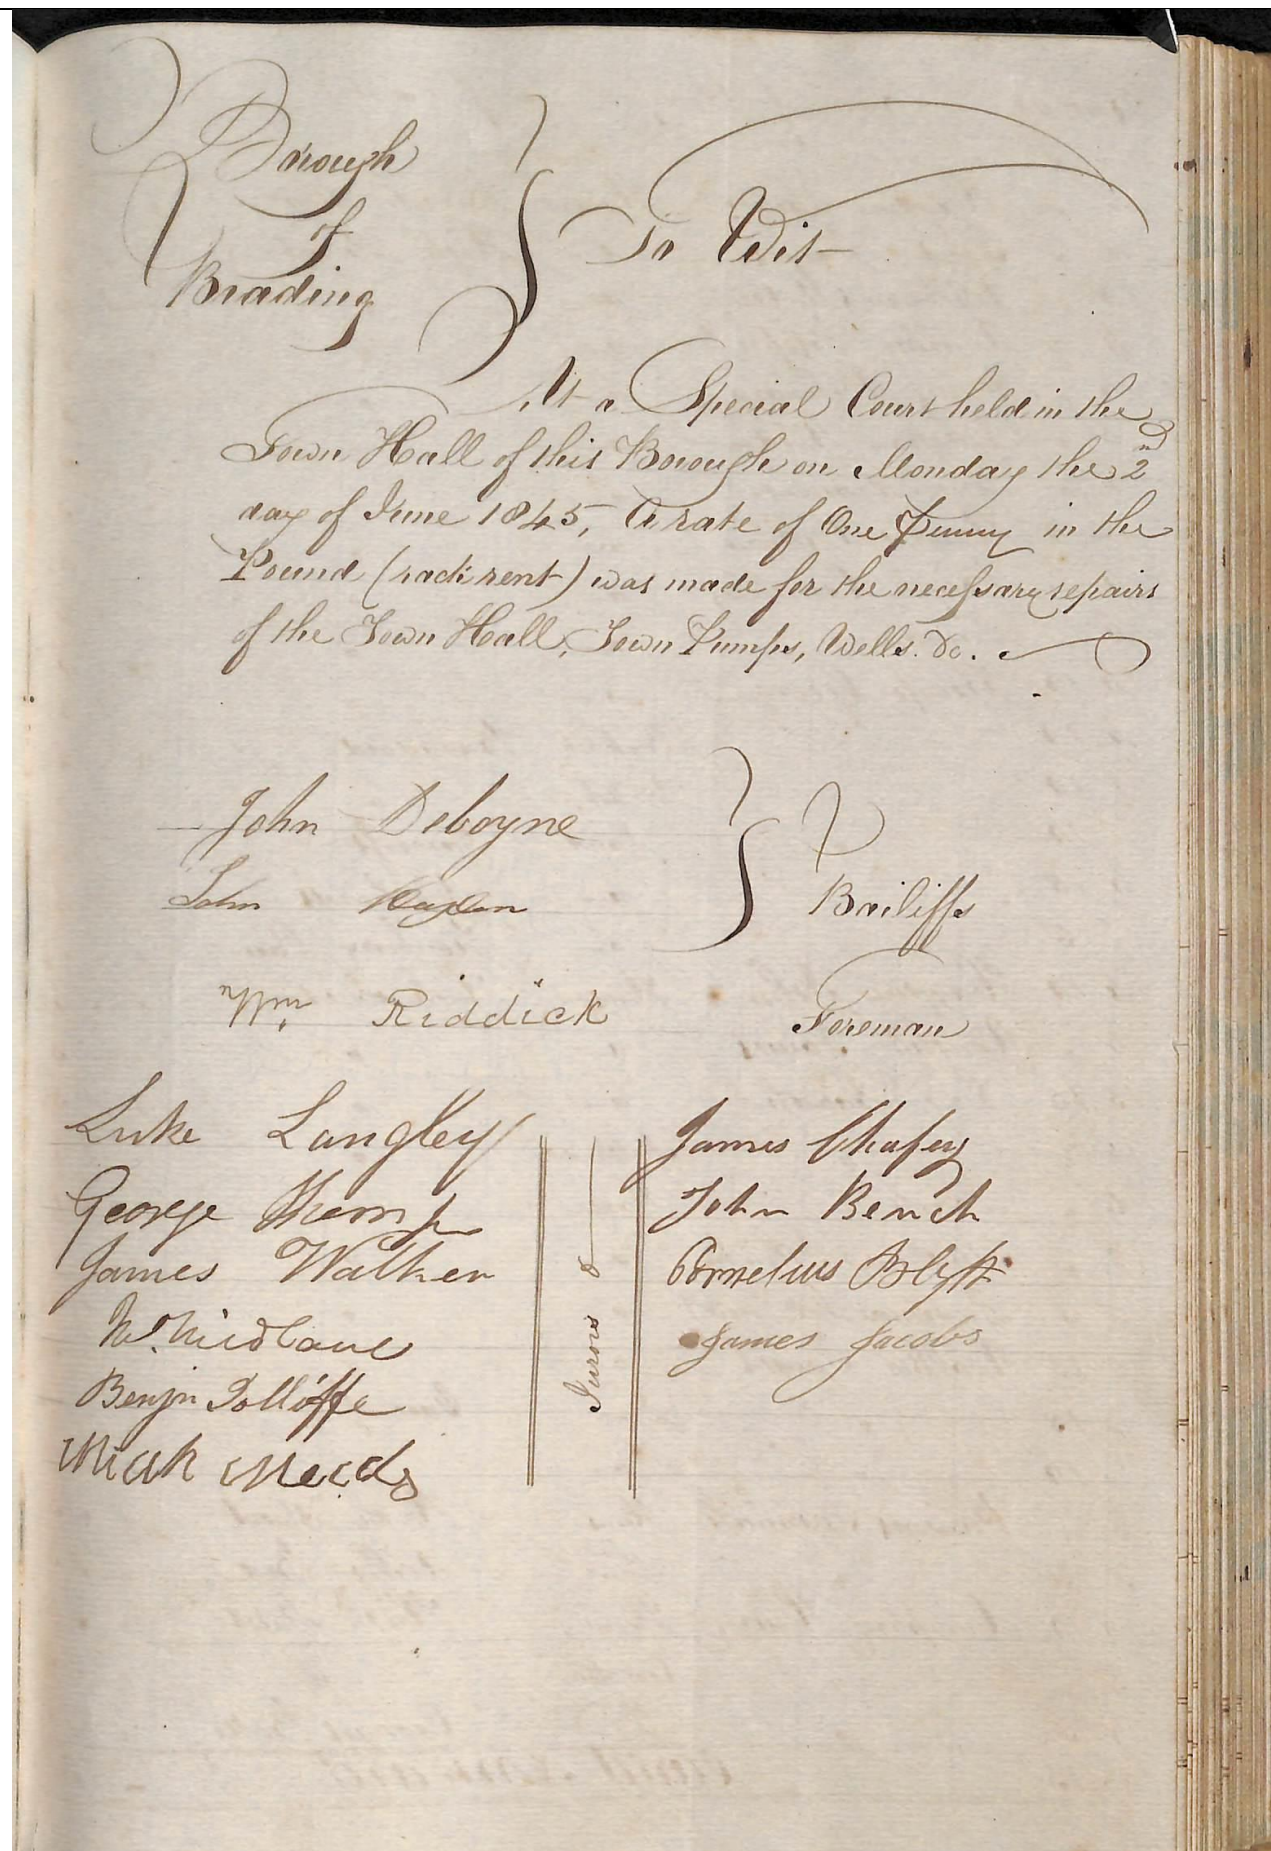 Borough
of
Brading
To Wit
At a Special Court held in the
Town Hall of this Borough on Monday the 2nd
day of June 1845, A rate of One Penny in the
Pound (rack rent) was made for the necessary repairs
of the Town Hall, Town Pumps, Wells. &c.
John Deboyne
John
Bailiffs
Wm. Riddick
Foreman
Luke Langley
George Kemp
James Walker
Wm. Midlane
Benjn Jolliffe
Meads
Jurors
James Chafey
John Bench
Cornelius Blyth
James Jacobs